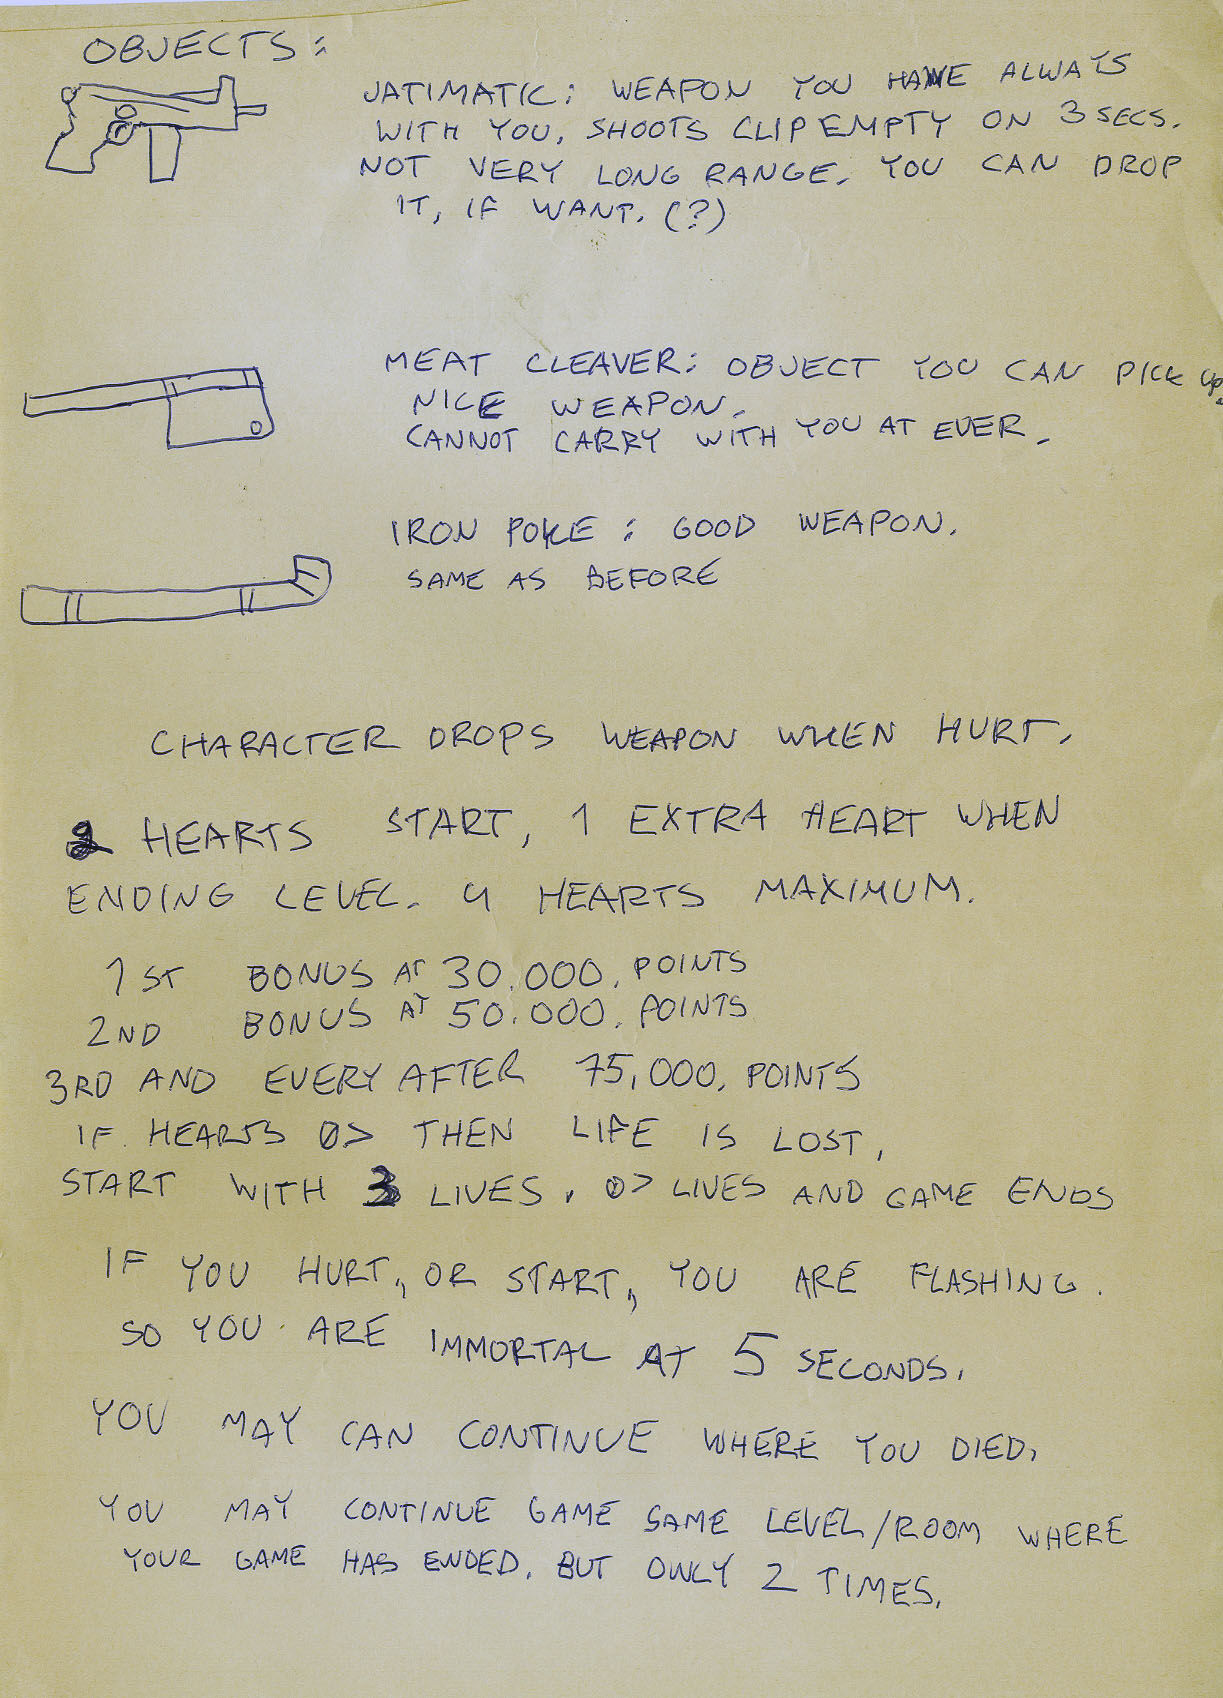 OBJECTS:
JATIMATIC: WEAPON YOU HAVE ALWAYS
WITH YOU, SHOOTS CLIP EMPTY ON 3 SECS.
NOT VERY LONG RANGE. YOU CAN DROP
IT, IF WANT. (?)
MEAT CLEAVER: OBJECT YOU CAN PICK UP.
NICE WEAPON.
CANNOT CARRY WITH YOU AT EVER.
IRON POKE: GOOD WEAPON.
SAME AS BEFORE
CHARACTER DROPS WEAPON WHEN HURT.
2 HEARTS START, 1 EXTRA HEART WHEN
ENDING LEVEL. 4 HEARTS MAXIMUM.
1ST BONUS AT 30.000. POINTS
2ND BONUS AT 50.000. POINTS
3RD AND EVERY AFTER 75,000. POINTS
IF HEARTS 0> THEN LIFE IS LOST,
START WITH 3 LIVES. 0> LIVES AND GAME ENDS
IF YOU HURT, OR START, YOU ARE FLASHING.
SO YOU ARE IMMORTAL AT 5 SECONDS.
YOU MAY CAN CONTINUE WHERE YOU DIED.
YOU MAY CONTINUE GAME SAME LEVEL/ROOM WHERE
YOUR GAME HAS ENDED. BUT ONLY 2 TIMES.